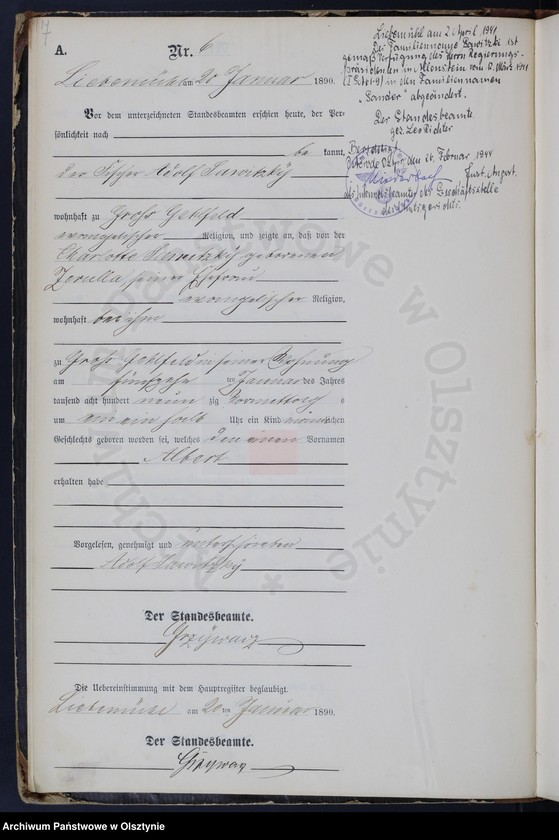 A.
Nr. 6
Liebemühl am 20 Januar 1890.
Vor dem unterzeichneten Standesbeamten erschien heute, der Per-
sönlichkeit nach
be kannt,
der Adolf Sawitzky
wohnhaft zu Groß Gehlfeld
evangelischer Religion, und zeigte an, daß von der
Charlotte Sawitzky geborenen
Zerulla, seiner Ehefrau
evangelischer Religion,
wohnhaft bei ihm
zu Groß Gehlfeld in seiner Wohnung
am fünfzehn ten Januar des Jahres
tausend acht hundert neun zig Vormittag s
um ein ein halb Uhr ein Kind männlichen
Geschlechts geboren worden sei, welches den einen Vornamen
Albert
erhalten habe
Vorgelesen, genehmigt und unterschrieben
Adolf Sawitzky
Der Standesbeamte.
Grzywacz
Die Uebereinstimmung mit dem Hauptregister beglaubigt.
Liebemühl am 20 ten Januar 1890.
Der Standesbeamte.
Grzywacz
Liebemühl am 2. April 1941
Der Familienname Sawitzki ist
gemäß Verfügung des Herrn Regierungs-
präsidenten in Allenstein vom März 1941
in den Familiennamen
"Sander" abgeändert.
Der Standesbeamte
gez.
Beglaubigt
Osterode Ostpr., den 26. Februar 1944
Just. Angest.
als Urkundsbeamter der Geschäftsstelle
des Amtsgerichts.
Archiwum Państwowe w Olsztynie
Archiwum Państwowe w Olsztynie